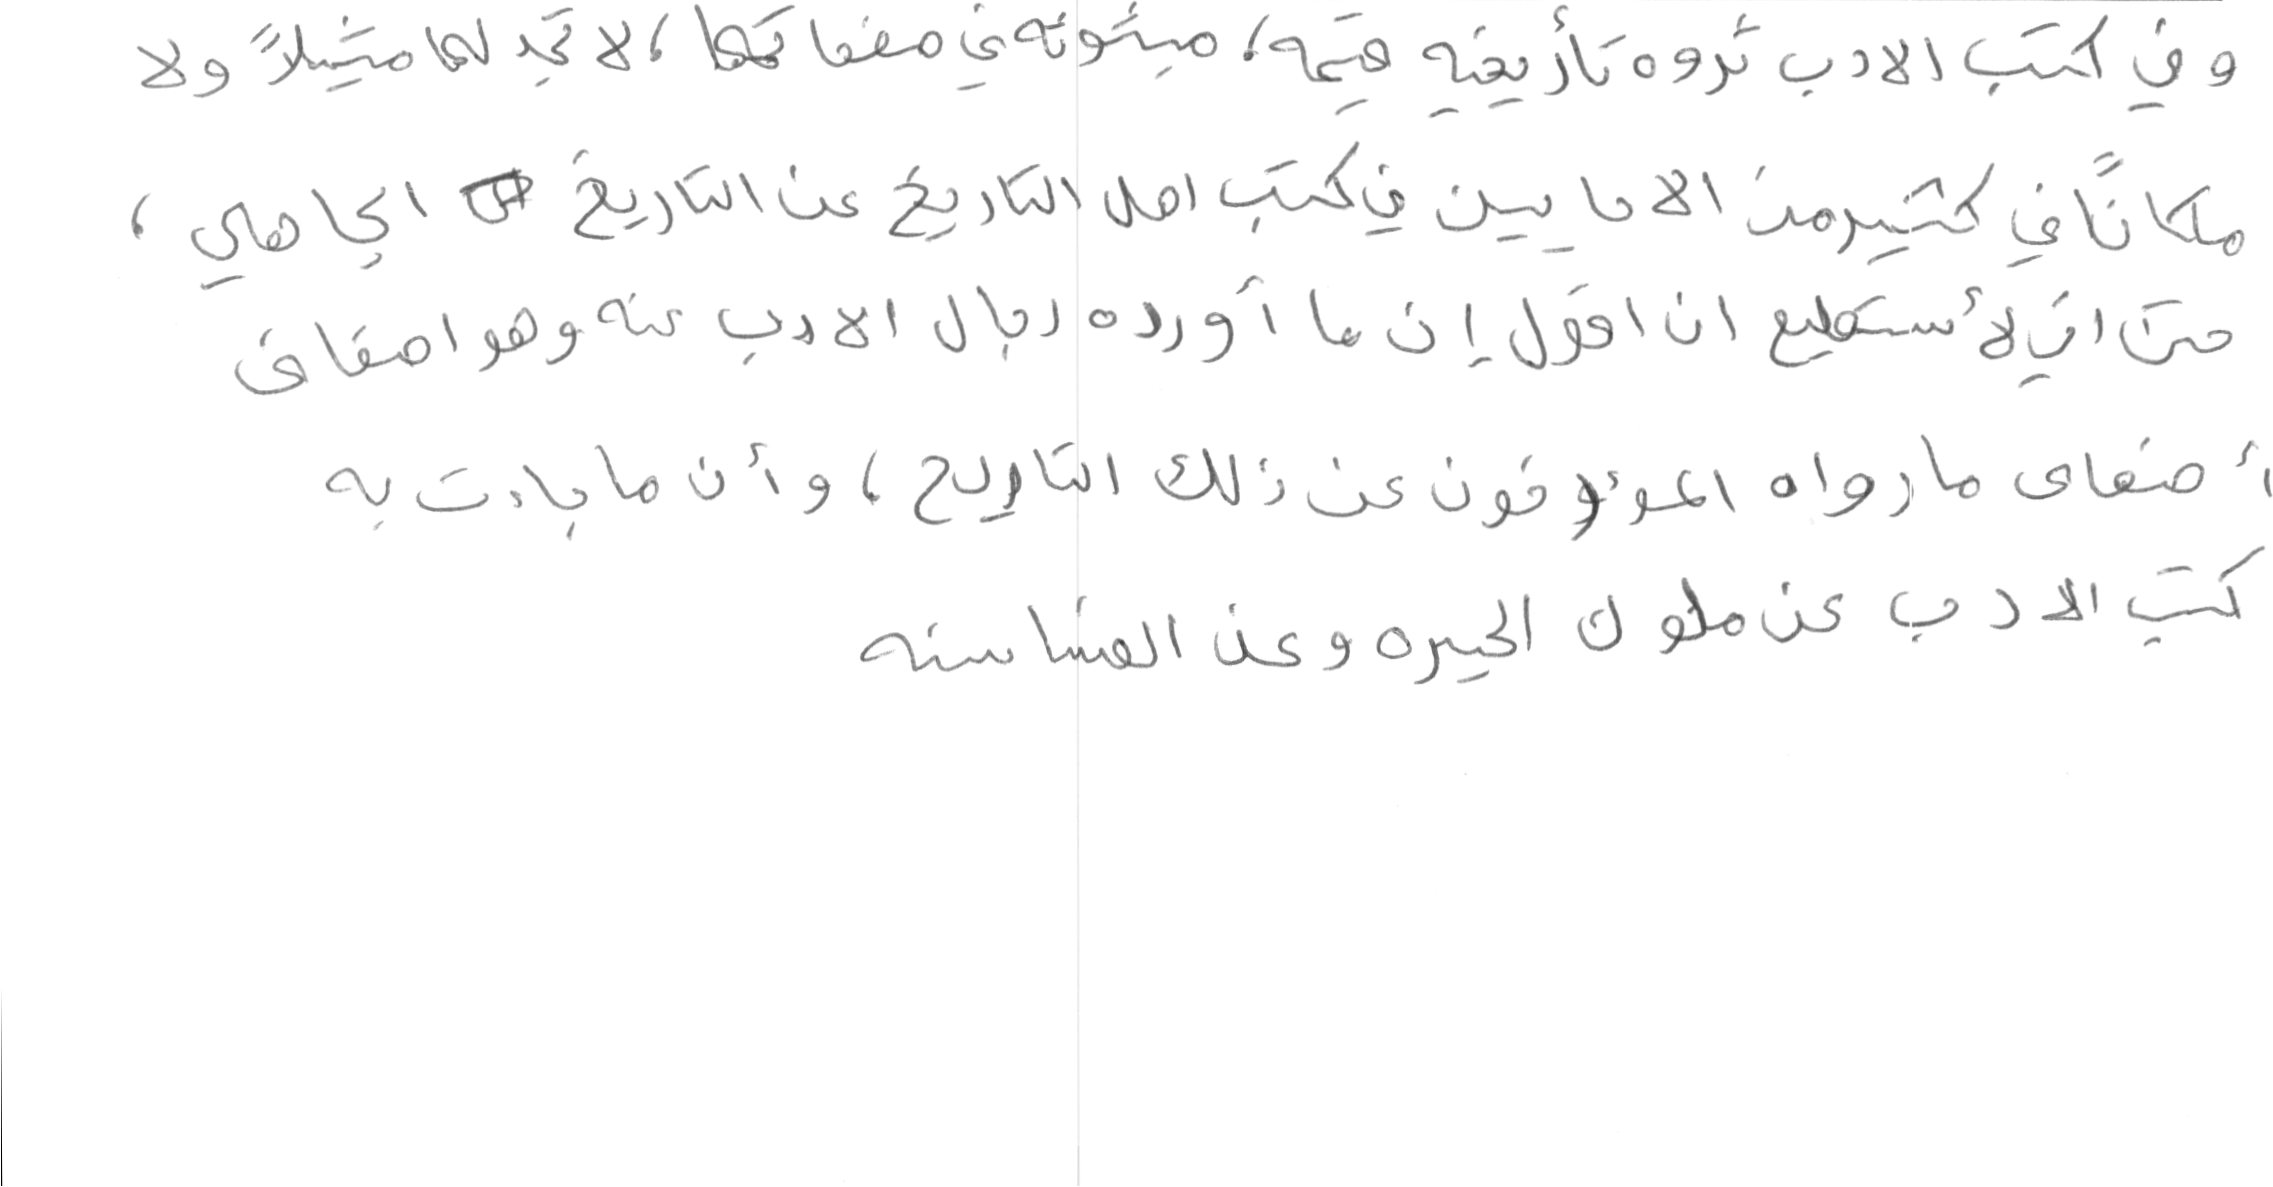 وفي كتب الادب ثروه تأريخيه قيمه، مبثوثه في صفحاتها، لا تجد لها مثيلاً ولا
مكاناً في كثير من الاحايين في كتب اهل التاريخ عن التاريخ الجاهلي،
حتى اني لأستطيع ان اقول إن ما أورده رجال الادب عنه وهو اضعاف
أضعاف ما رواه المؤرخون عن ذلك التاريخ، وأن ما جادت به
كتب الادب عن ملوك الحيره وعن الغساسنه